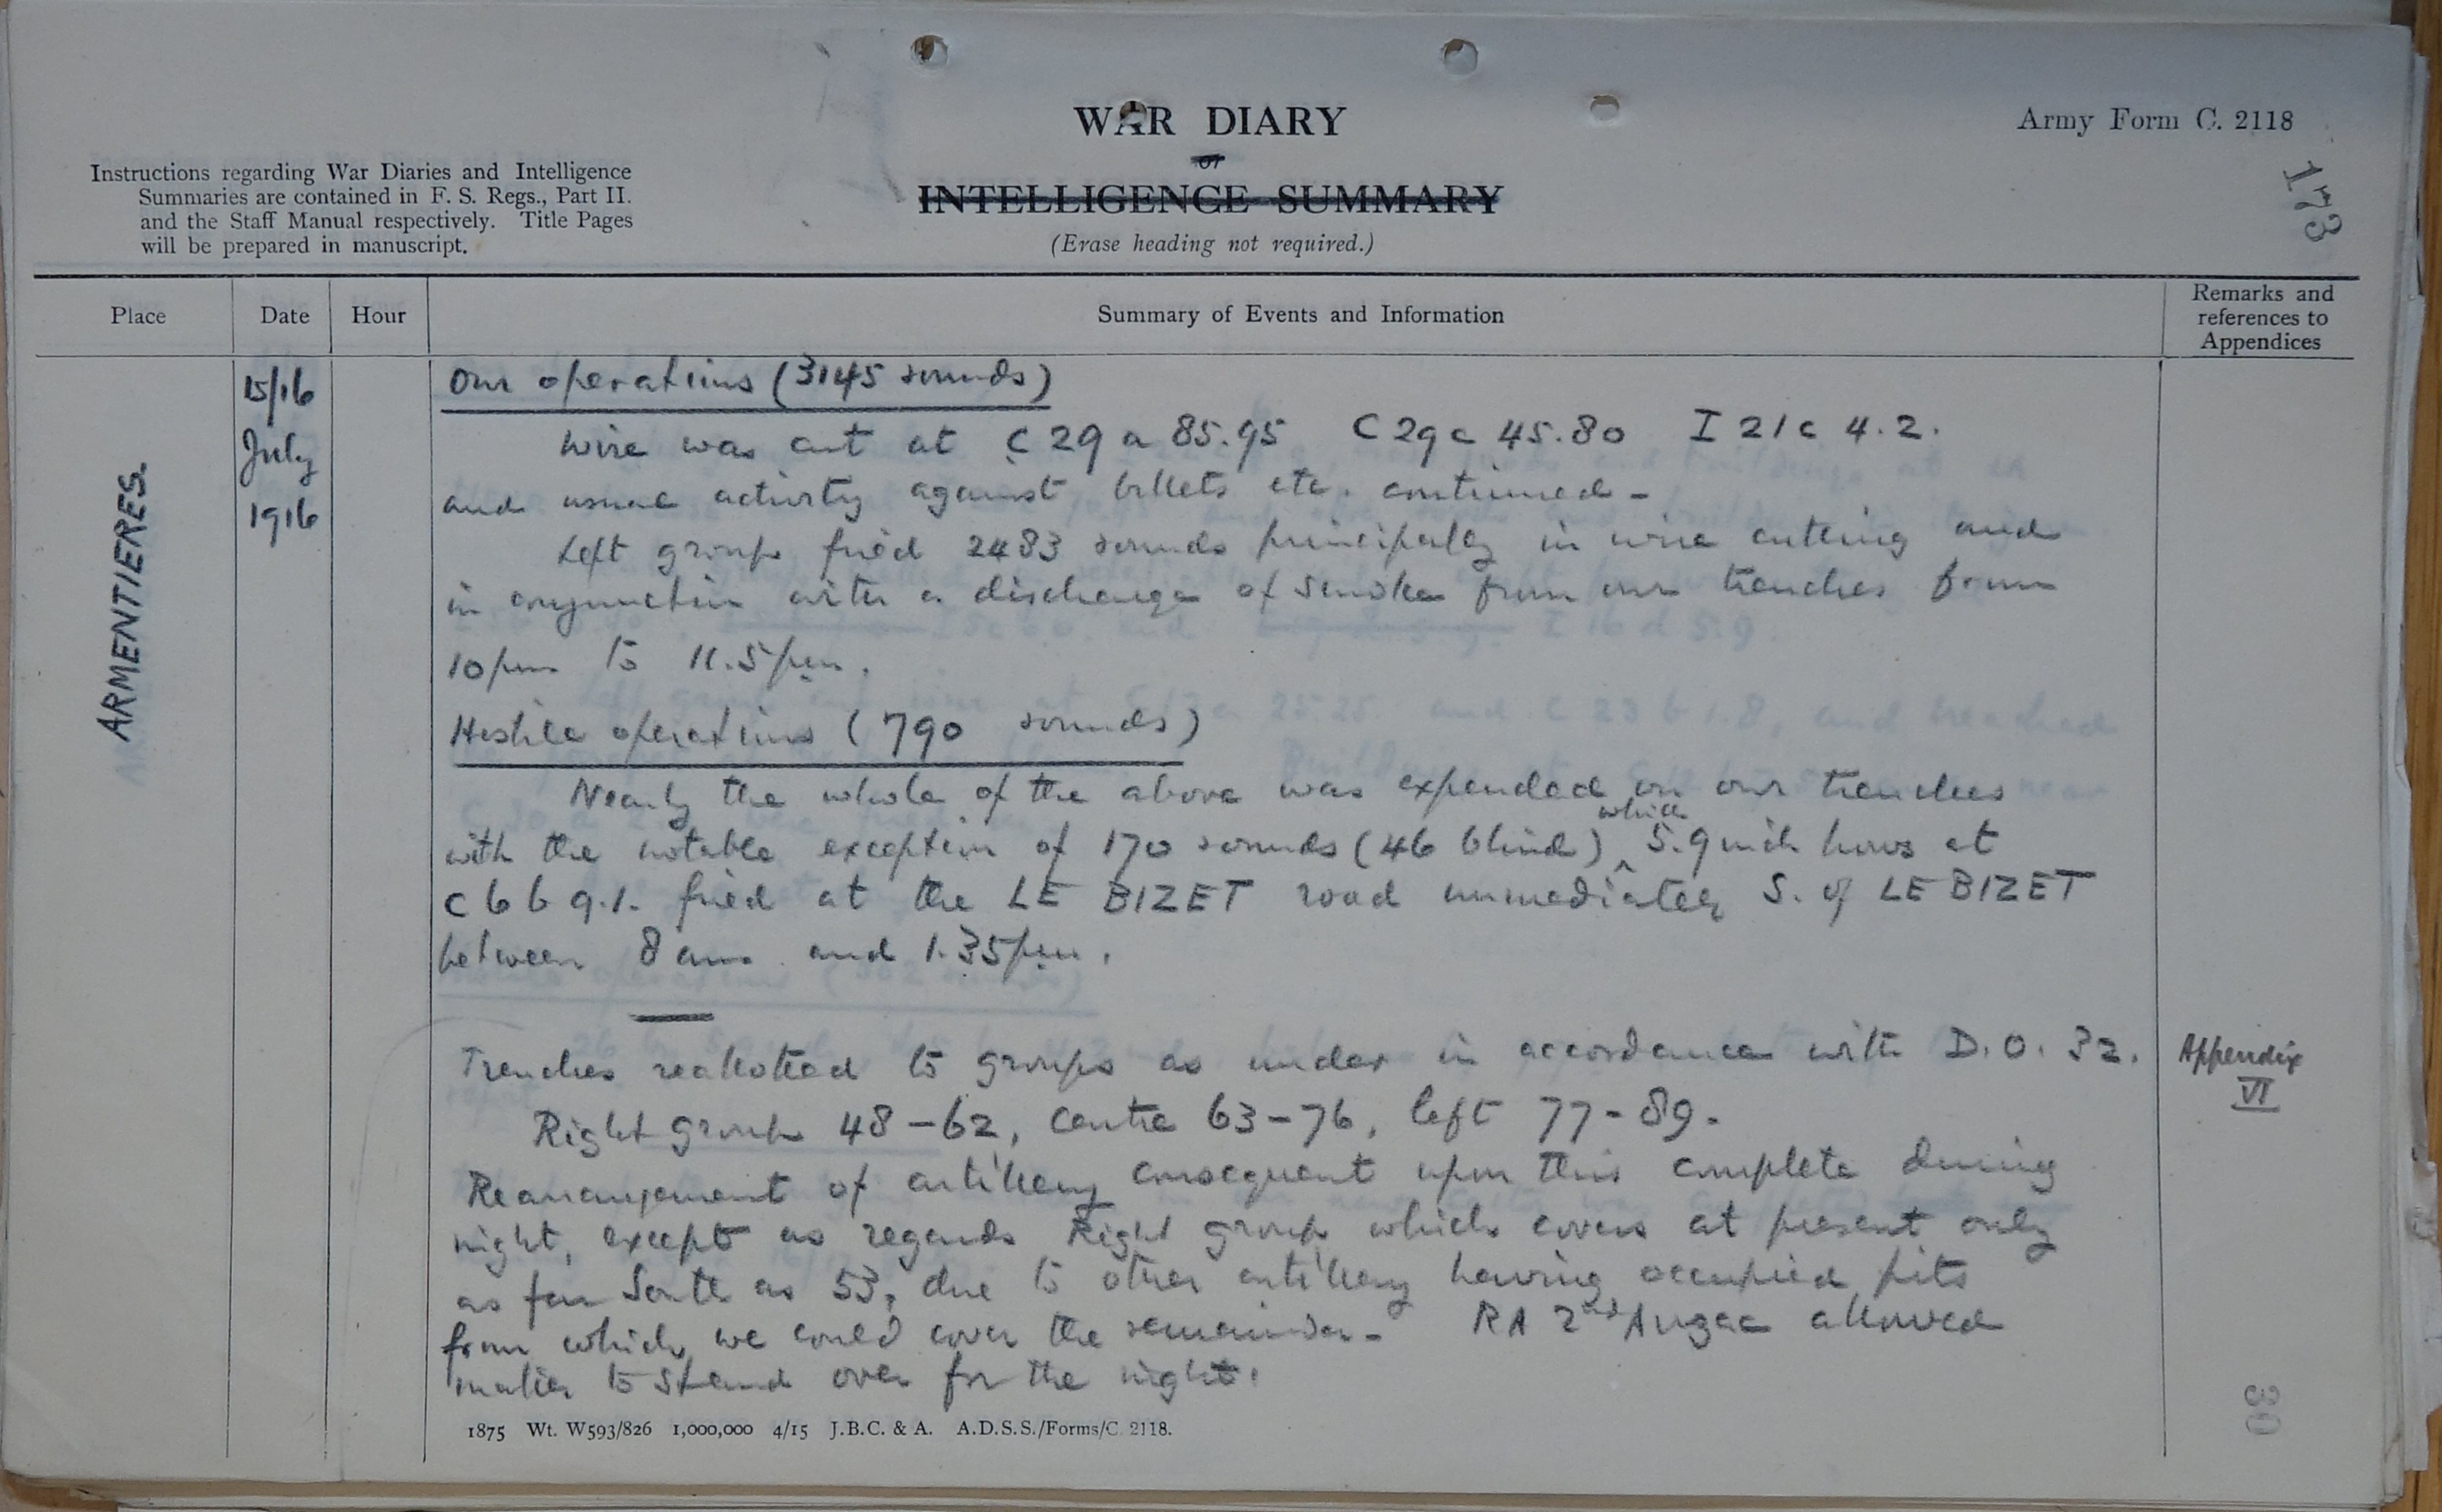 WAR DIARY
or
INTELLIGENCE SUMMARY
(Erase heading not required.)
Army Form C. 2118
173
Instructions regarding War Diaries and Intelligence
Summaries are contained in F. S. Regs., Part II.
and the Staff Manual respectively. Title Pages
will be prepared in manuscript.
Place
Date
Hour
Summary of Events and Information
Remarks and
references to
Appendices
ARMENTIERES.
15/16
July
1916
Our operations (3145 rounds)
Wire was cut at C 29 a 85.95 C 29 c 45.80 I 21 c 4.2.
and usual activity against billets etc. continued -
Left group fired 2483 rounds principally in wire cutting and
in conjunction with a discharge of smoke from our trenches from
10 pm to 11.5 pm.
Hostile operations (790 rounds)
Nearly the whole of the above was expended on our trenches
with the notable exception of 170 rounds (46 blind) which 5.9 inch hows at
C 6 b 9.1. fired at the LE BIZET road immediately S. of LE BIZET
between 8 am. and 1.35 pm.
Trenches reallotted to groups as under in accordance with D.O. 32.
Appendix
VI
Right group 48-62, centre 63-76, left 77-89.
Rearrangement of artillery consequent upon this complete during
night, except as regards Right group which covers at present only
as far South as 53, due to other artillery having occupied pits
from which we could cover the remainder - RA 2nd Anzac allowed
matter to stand over for the night.
30
1875 Wt. W593/826 1,000,000 4/15 J.B.C. & A. A.D.S.S./Forms/C. 2118.